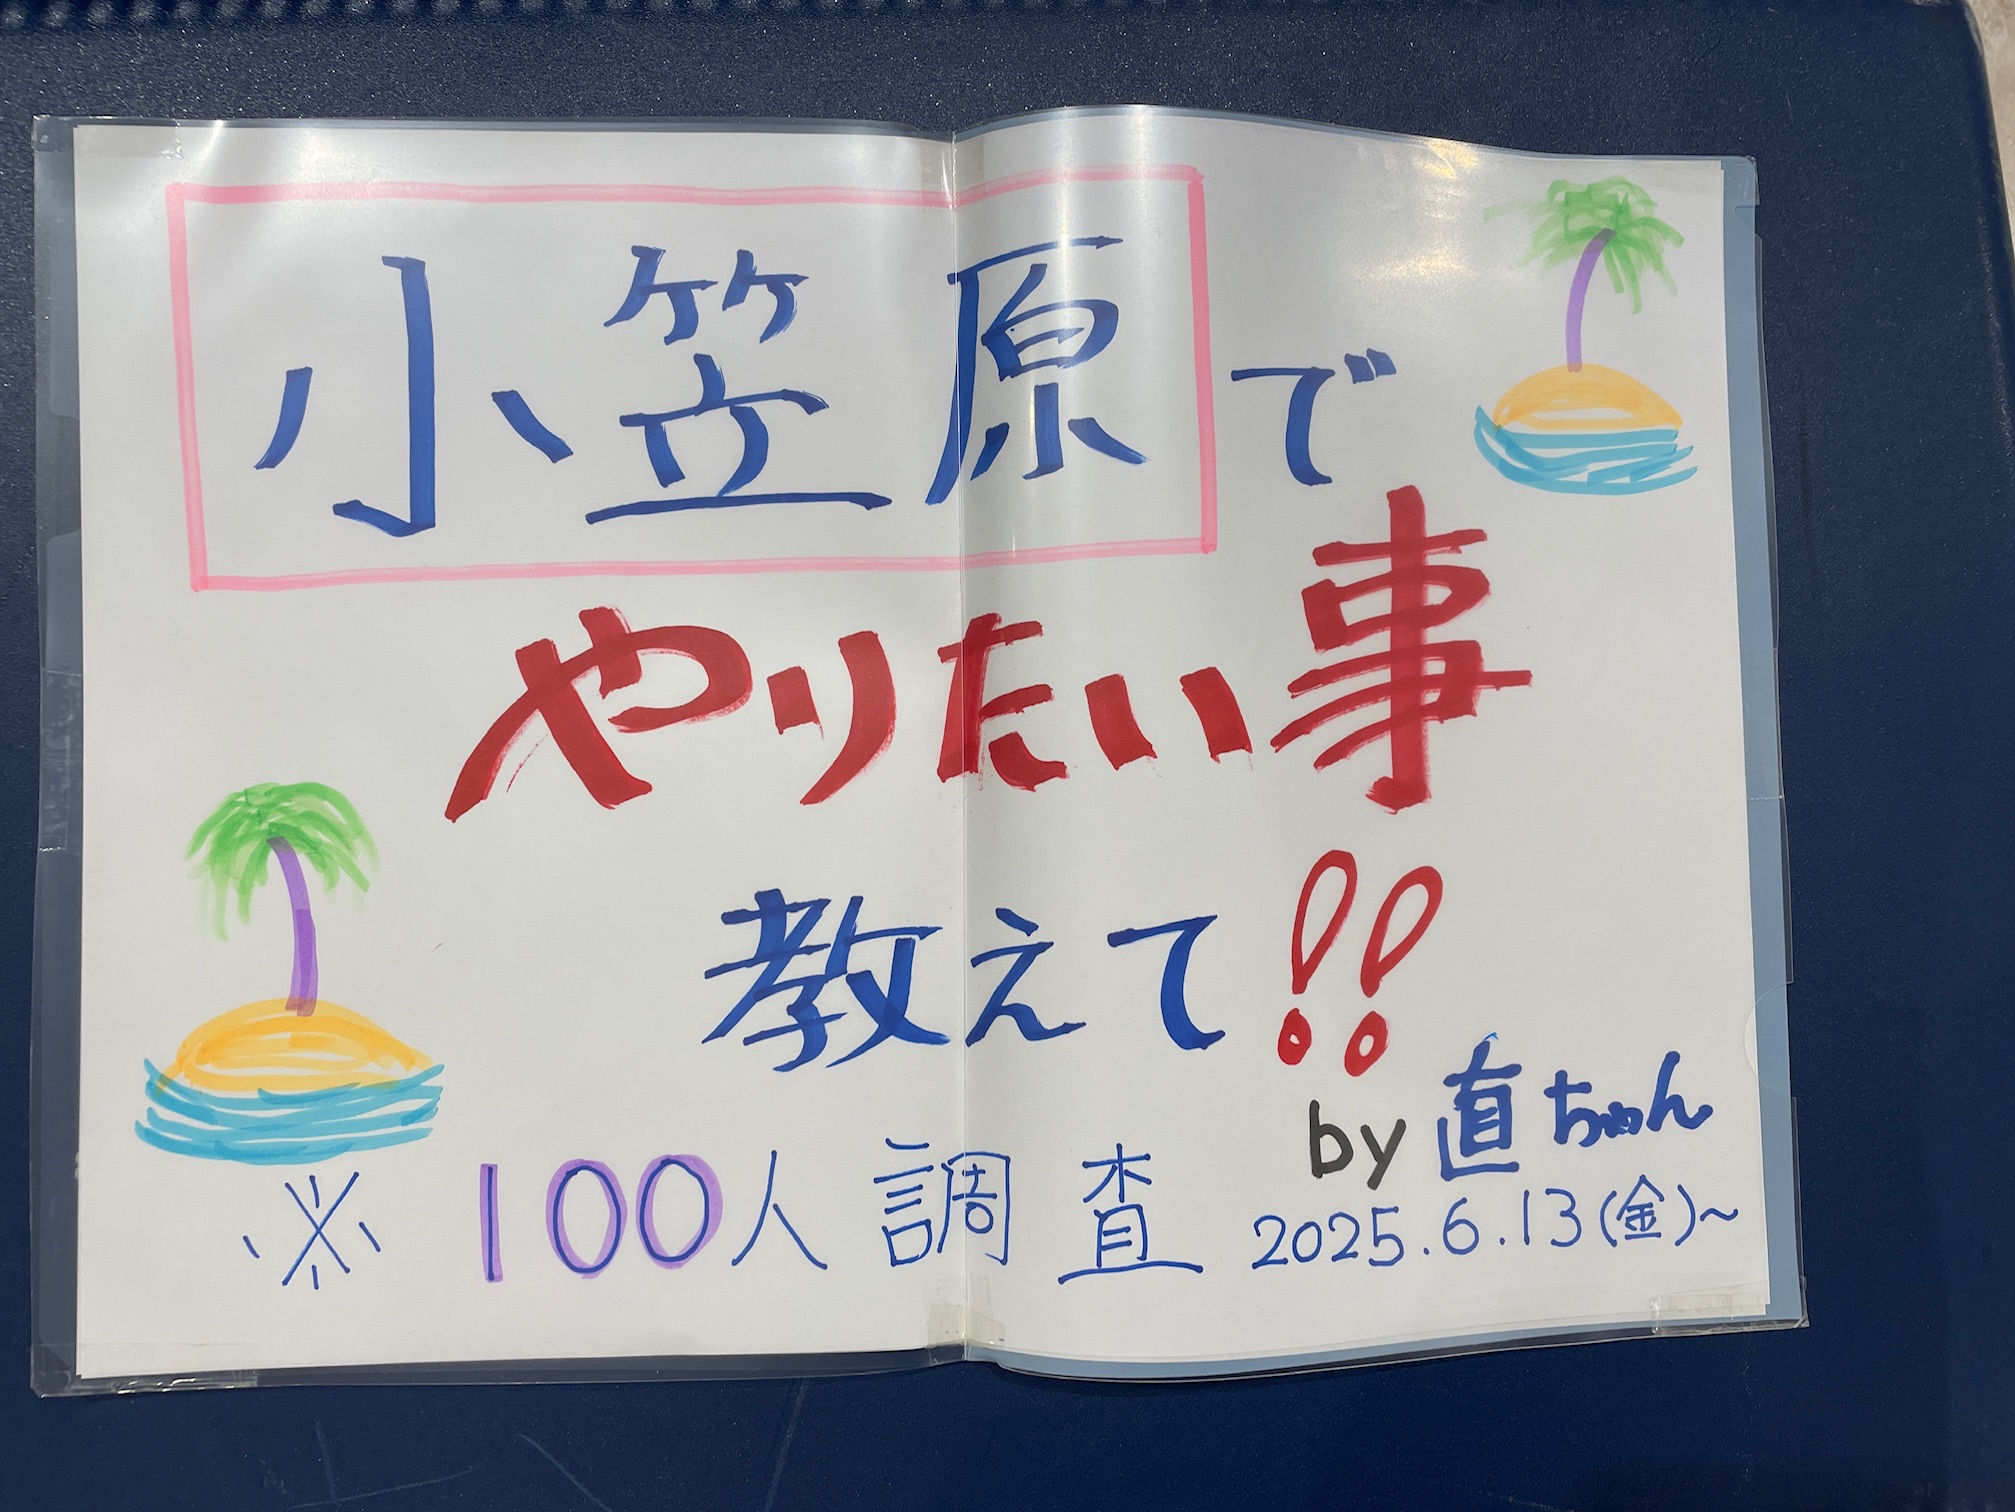 小笠原で
やりたい事
教えて!!
by 直ちゃん
※100人調査 2025.6.13(金)～